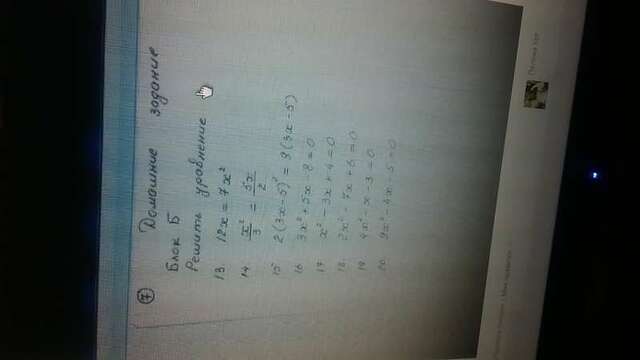 7 Домашние задание
Блок Б
Решить уравнение
13. 12x = 7x²
14 x²/3 = 5x/2
15 2(3x-5)² = 9(3x-5)
16 3x² + 5x - 8 = 0
17. x² - 3x + 4 = 0
18. 2x² - 7x + 6 = 0
19. 4x² - x - 3 = 0
20. 9x² - 4x - 5 = 0